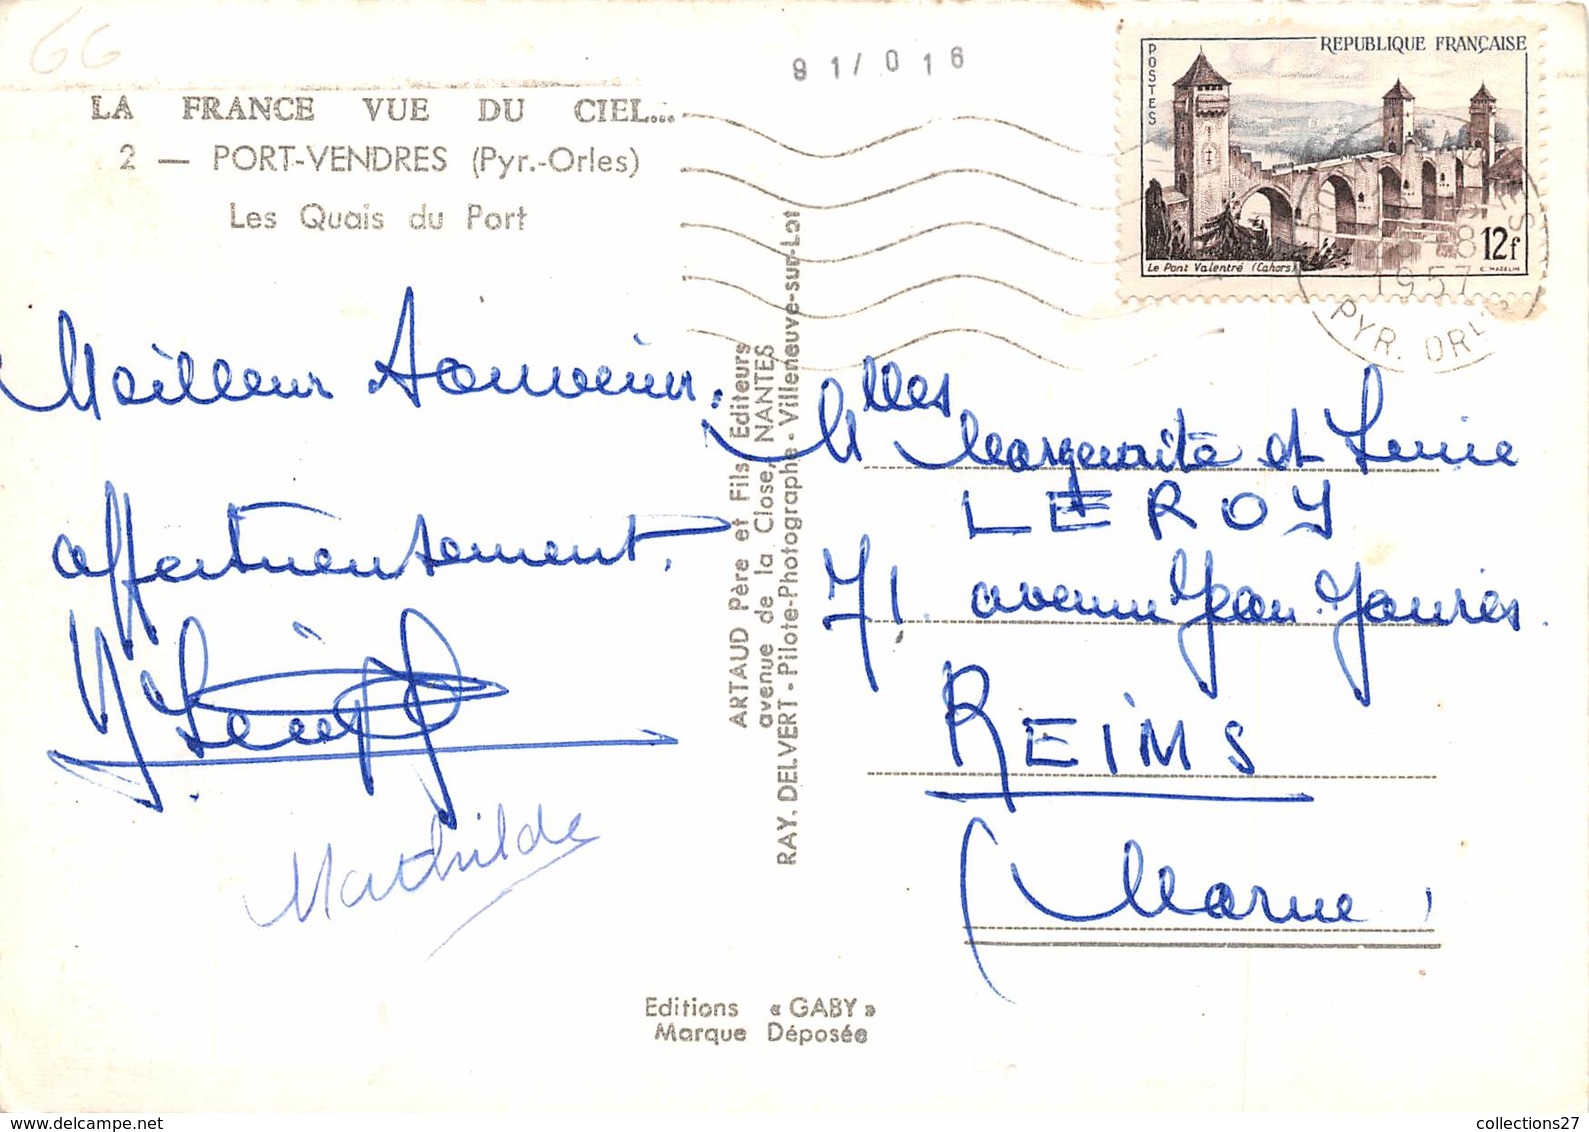 66
91/016
LA FRANCE VUE DU CIEL...
2 — PORT-VENDRES (Pyr.-Orles)
Les Quais du Port
POSTES
REPUBLIQUE FRANÇAISE
12f
Le Pont Valentré (Cahors)
C. MAZELIN
1957
PYR. ORLES
Meilleur souvenir.
affectueusement.
Mathilde
ARTAUD Père et Fils Editeurs
avenue de la Close, NANTES
RAY. DELVERT - Pilote-Photographe - Villeneuve-sur-Lot
Mlles
Marguerite et
LEROY
71. avenue Jean Jaurès.
REIMS
(Marne)
Editions « GABY »
Marque Déposée
www.delcampe.net
collections27